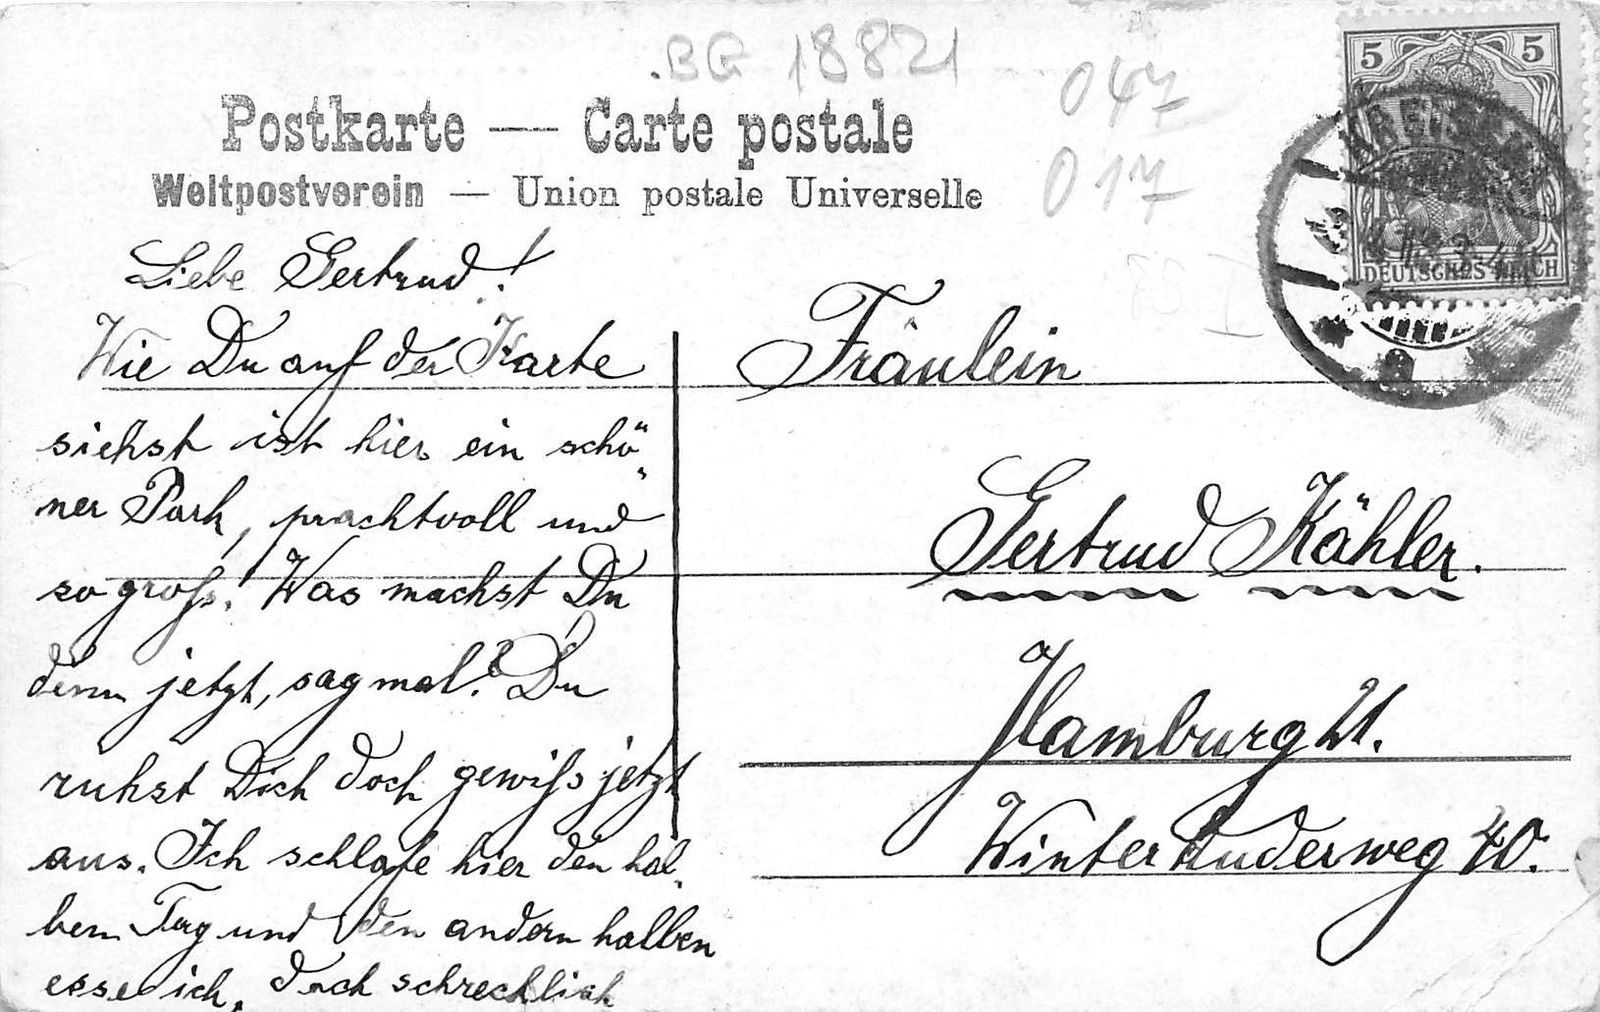 BG 18821
047
017
5 5
DEUTSCHES REICH
Postkarte — Carte postale
Weltpostverein — Union postale Universelle
Liebe Gertrud!
Wie Du auf der Karte
siehst ist hier ein schö"
"ner Park, prachtvoll und
so groß! Was machst Du
denn jetzt, sag mal? Du
ruhst Dich doch gewiß jetzt
aus. Ich schlafe hier den hal-
ben Tag und den andern halben
esse ich, doch schrecklich
Fräulein
Gertrud Kähler.
Hamburg 21.
Winterhuderweg 40.